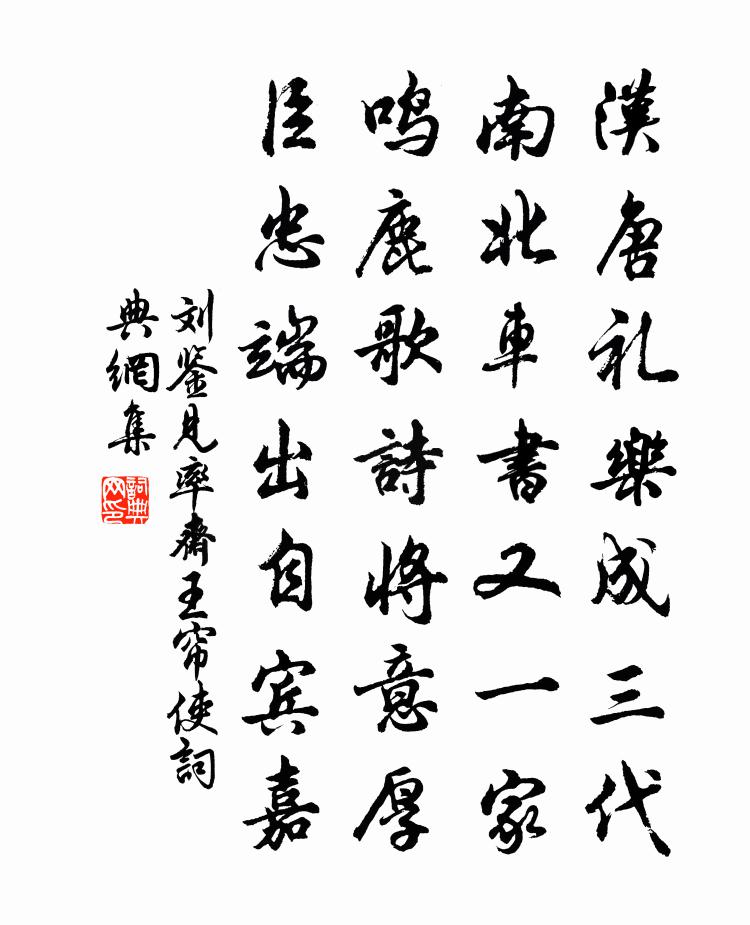 漢唐礼樂成三代
南北車書又一家
鸣鹿歌詩將意厚
臣忠端出自宾嘉
刘鉴见率斋王帘使詞
典網集
詞典网印